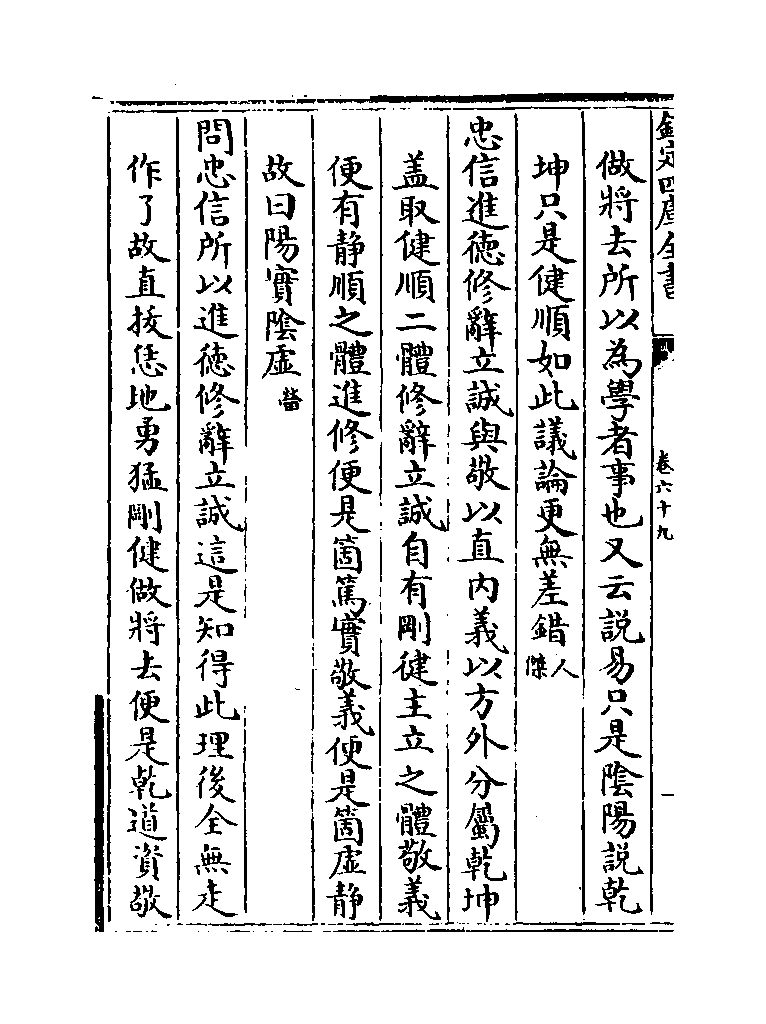 欽定四庫全書
卷六十九
一
做將去所以為學者事也又云説易只是陰陽説乾
坤只是健順如此議論更無差錯人傑
忠信進德修辭立誠與敬以直内義以方外分屬乾坤
盖取健順二體修辭立誠自有剛健主立之體敬義
便有静順之體進修便是箇篤實敬義便是箇虚静
故曰陽實陰虚㽦
問忠信所以進徳修辭立誠這是知得此理後全無走
作了故直拔恁地勇猛剛健做將去便是乾道資敬